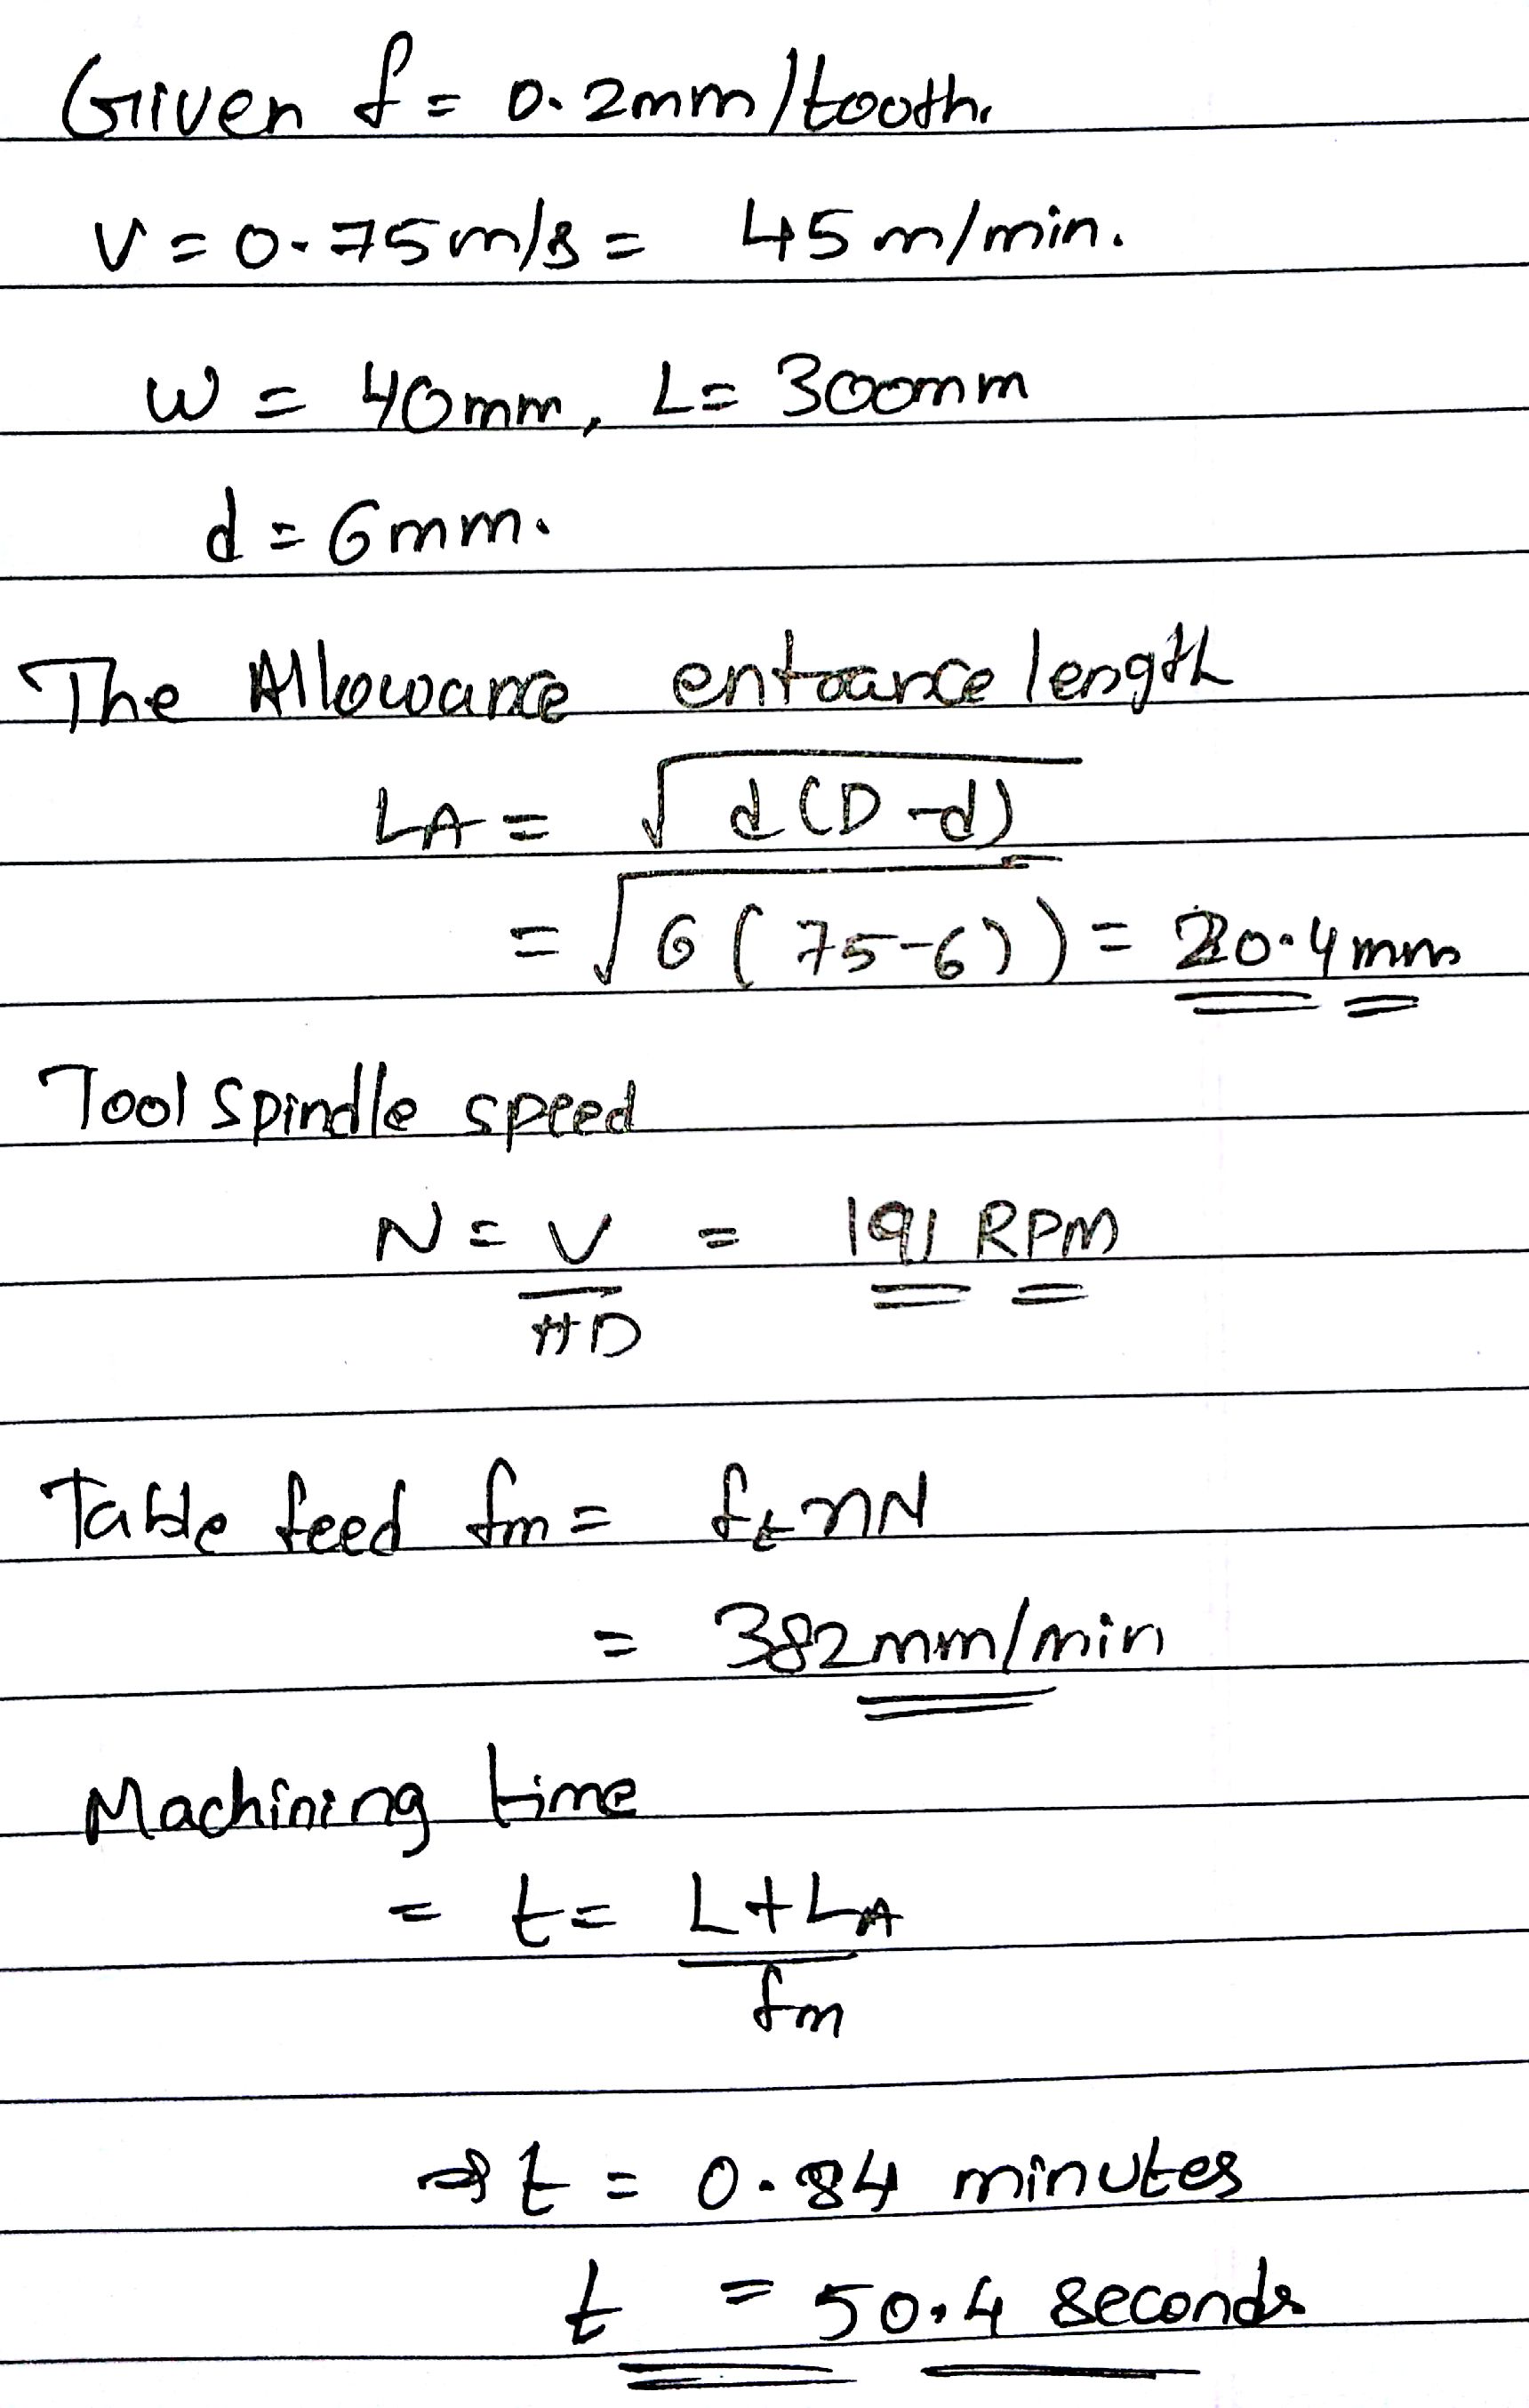 Given f = 0.2mm/tooth.
V = 0.75m/s = 45 m/min.
W = 40mm, L = 300mm
d = 6mm.
The Allowance entrance length
LA = √d(D-d)
= √6(75-6)) = 20.4mm
Tool spindle speed
N = V/πD = 191 RPM
Table feed fm = ft nN
= 382mm/min
Machining time
= t = L+LA/fm
⇒ t = 0.84 minutes
t = 50.4 seconds